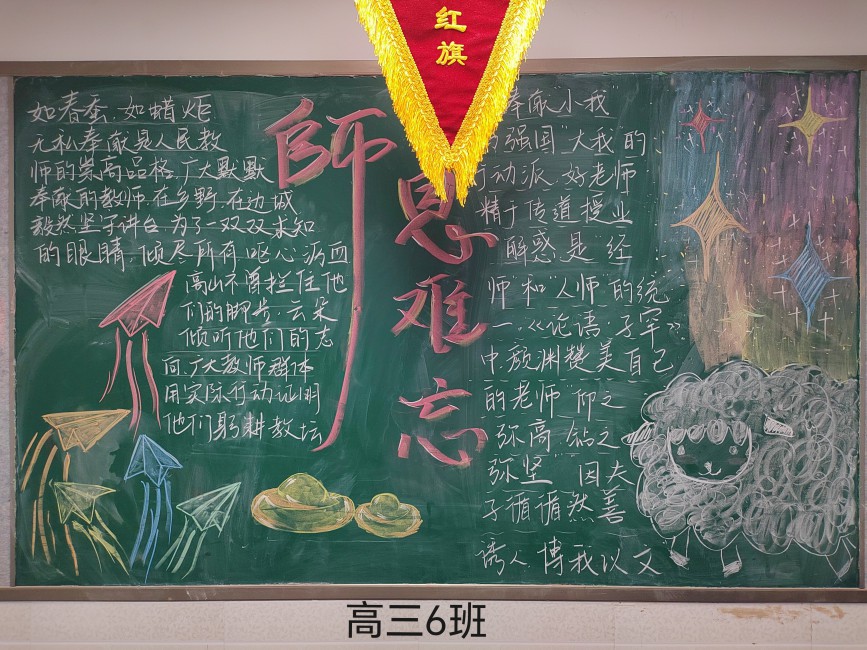 红
旗
師
恩
难
忘
如春蚕.如蜡炬
无私奉献是人民教
师的崇高品格.广大默默
奉献的教师.在乡野.在边城
毅然坚守讲台.为了一双双求知
的眼睛.倾尽所有.呕心沥血
高山不曾拦住他
们的脚步.云朵
倾听他们的志
向.广大教师群体
用实际行动证明
他们躬耕教坛
奉献"小我"
强国"大我"的
行动派.好老师
精于传道授业
解惑.是"经
师"和"人师"的统
一.《论语·子罕》
中.颜渊赞美自己
的老师"仰之
弥高.钻之
弥坚"因夫
子循循然善
诱人.博我以文
高三6班